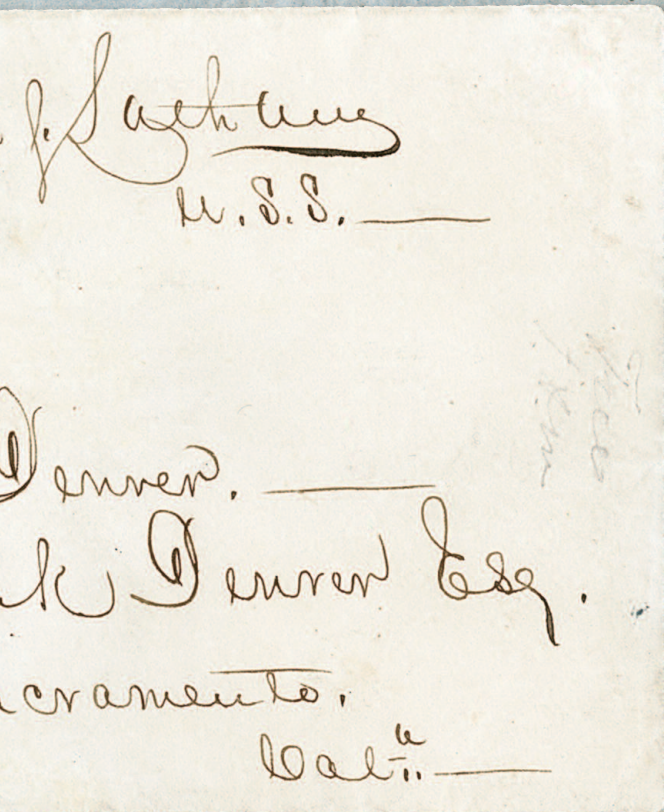 . S. Latham
U.S.S.
Denver.
k Denver Esq.
cramento.
Cal.a